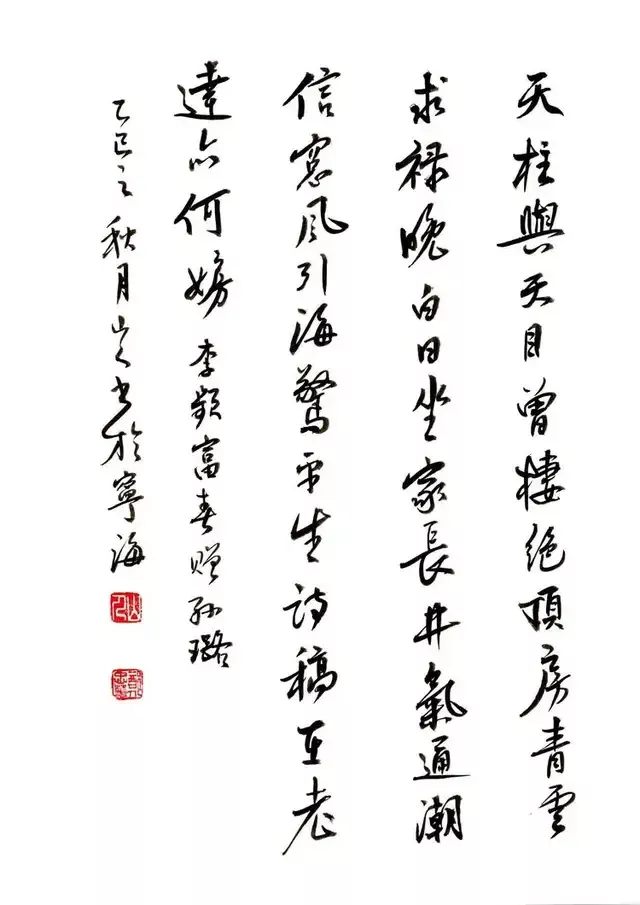 天柱與天目曾棲絕頂房青雲
求禄晚白日坐家長井氣通潮
信窓風引海驚平生詩稿在老
達亦何妨 李頻富春贈孫璐
乙巳之秋月山人書於寧海